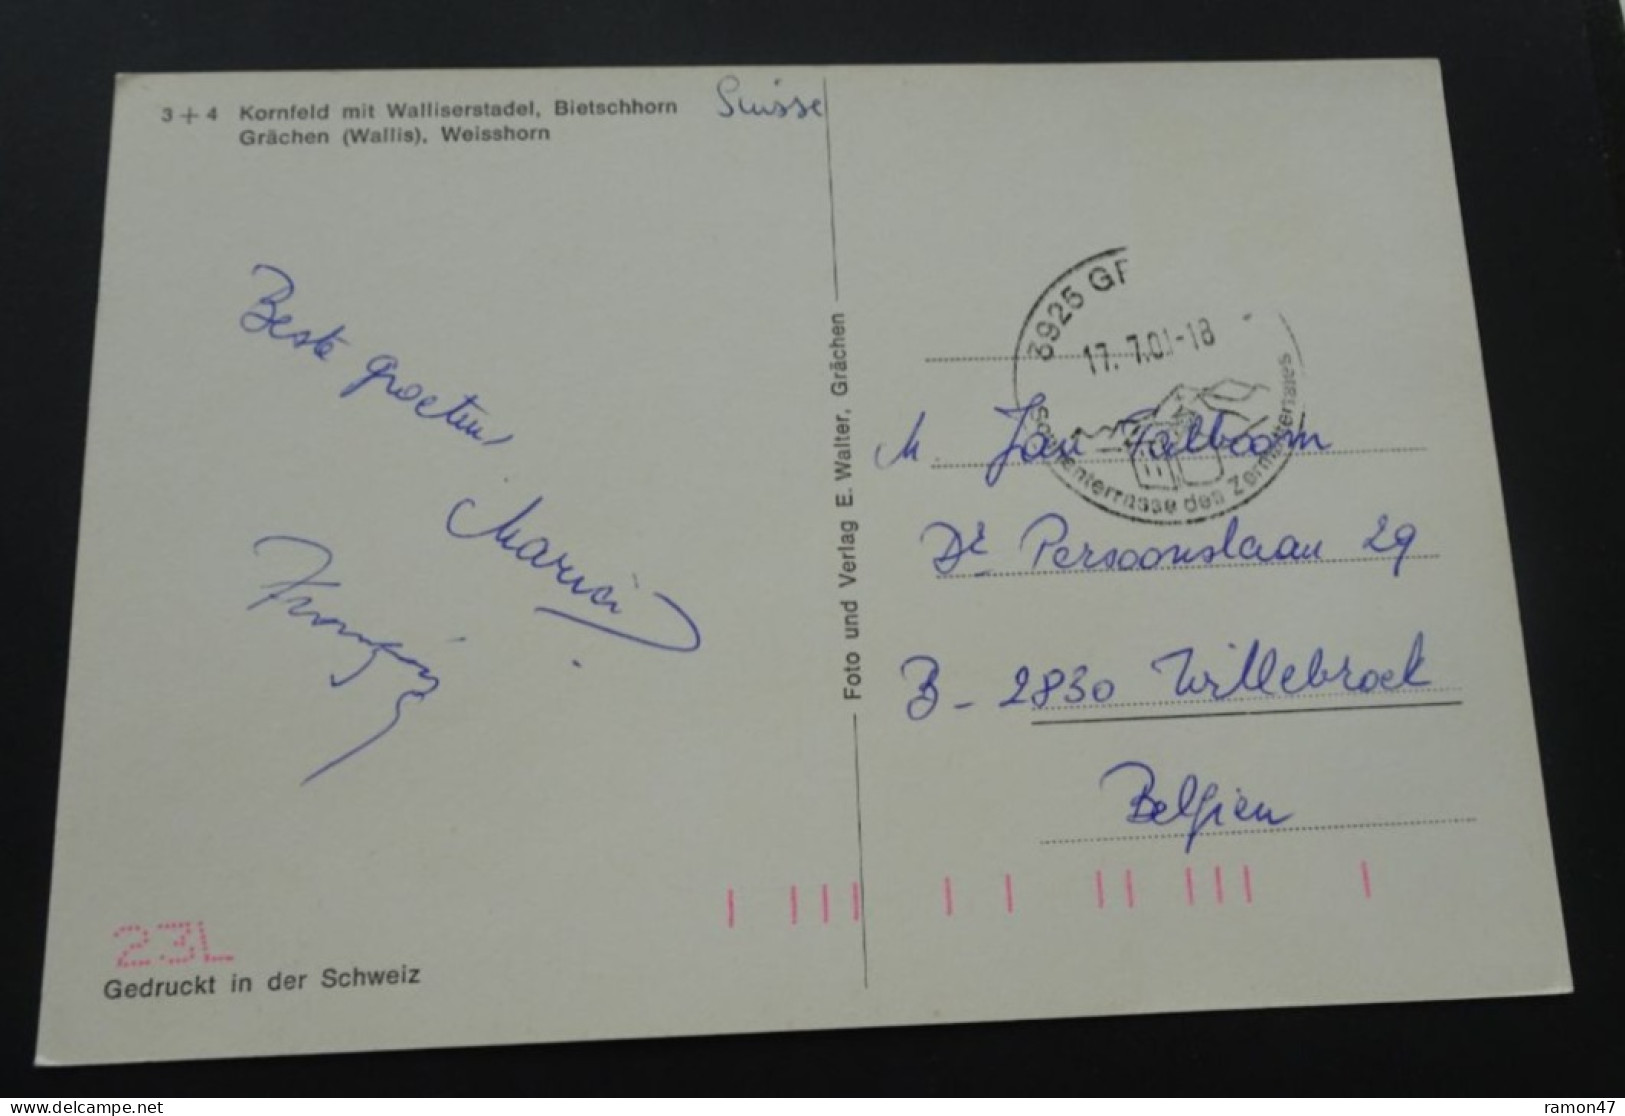 3+4 Kornfeld mit Walliserstadel, Bietschhorn
Grächen (Wallis), Weisshorn
Suisse
Beste groeten,
Foto und Verlag E. Walter, Grächen
3925 GR
17. 7.01-18
Sonnenterrasse des Zermattertales
M. Jan
Dr Persoonslaan 29
B-2830 Willebroek
Belgien
23L
Gedruckt in der Schweiz
delcampe.net
ramon47